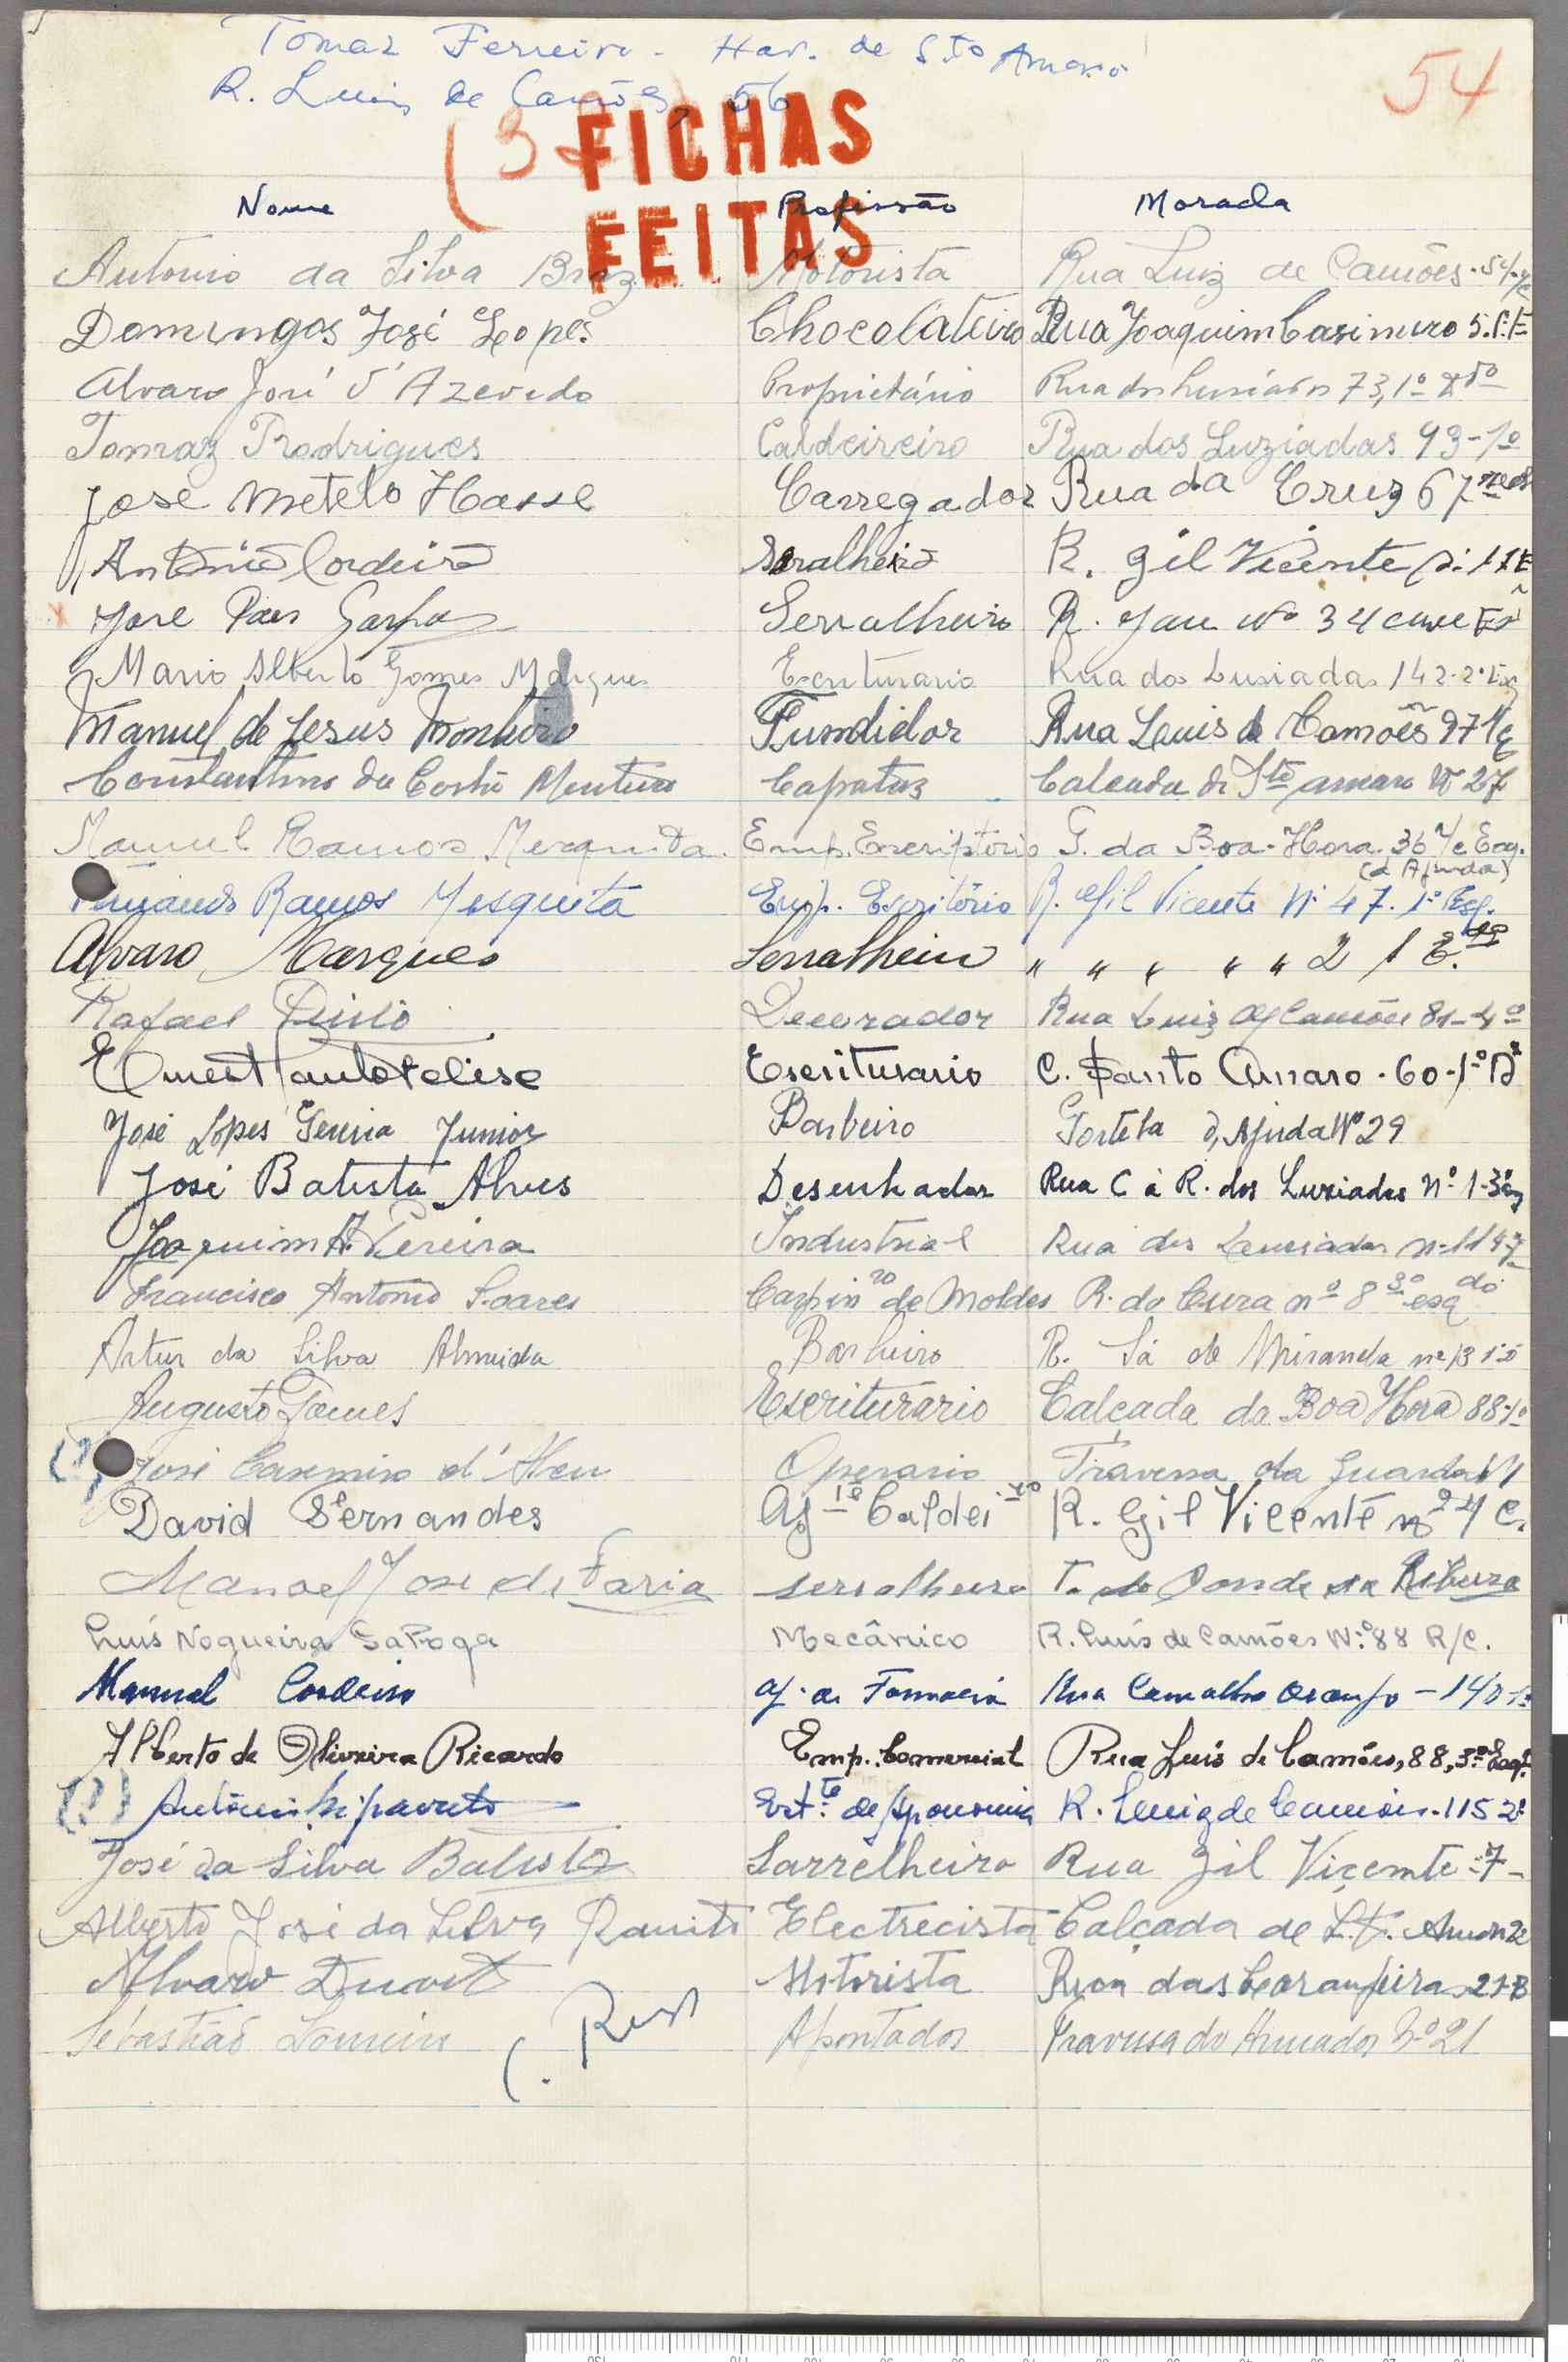 Tomaz Ferreira - Hav. de Sto Amaro
R. Luis de Camões, 56
54
FICHAS
FEITAS
Nome Profissão Morada
Antonio da Silva Braz Motorista Rua Luiz de Camões
Domingos José Lopes Chocolateiro Rua Joaquim Casimiro 5
Alvaro José d'Azevedo Proprietário Rua dos Lusiadas 73, 1º
Tomaz Rodrigues Caldeireiro Rua dos Luziadas 93-1º
José Metelo Hasse Carregador Rua da Cruz 67
António Cordeiro Seralheiro R. Gil Vicente
José Paes Serralheiro R. Jau Nº 34
Mario Alberto Gomes Escriturario Rua dos Lusiadas 142-2º Esq
Manuel de Jesus Monteiro Fundidor Rua Luis de Camões 97
Constantino da Costa Monteiro Capataz Calcada de Sto amaro Nº 27
Manuel Ramos Mesquita. Emp. Escriptorio T. da Boa-Hora 36 r/c Esq.
(á Ajuda)
Ramos Mesquita Emp. Escritório R. Gil Vicente Nº 47. 1º Esq.
Alvaro Marques Serralheiro " " " " " 2 1
Rafael Decorador Rua Luiz de Camões 81-4º
Escriturario C. Santo Amaro - 60-1º
José Lopes Junior Barbeiro d'Ajuda Nº 29
José Batista Alves Desenhador Rua C à R. dos Luziadas nº 1-3º
Joaquim A. Pereira Industrial Rua dos
Francisco António Soares Carpinro de Moldes R. do Cura nº 8 3º esqdo
Artur da Silva Almeida Barbeiro R. Sá de Miranda nº 13 1º
Augusto Gomes Escriturário Calçada da Boa Hora 88-1º
José Casemiro d'Abreu Operario Travessa da Guarda
David Fernandes Ajte Caldeiro R. Gil Vicente nº 4 C.
Manoel José de Faria serralheiro T. do Conde da Ribeira
Luís Nogueira Mecânico R. Luís de Camões Nº 88 R/C.
Manuel Cordeiro Aj. de Farmacia Rua Carvalho Araujo - 140
Alberto de Oliveira Ricardo Emp. Comercial Rua Luís de Camões, 88, 3º Esqº
António Estte de Agronomia R. Luiz de Camões - 115 2º
José da Silva Batista Sarrelheiro Rua Gil Vicemte - 7 -
Alberto José da Silva Electrecista Calçada de Sto. Amaro
Alvaro Duarte Motorista Rua das Laranjeiras 21-B
Sebastião Apontador Travessa do Armador Nº 21